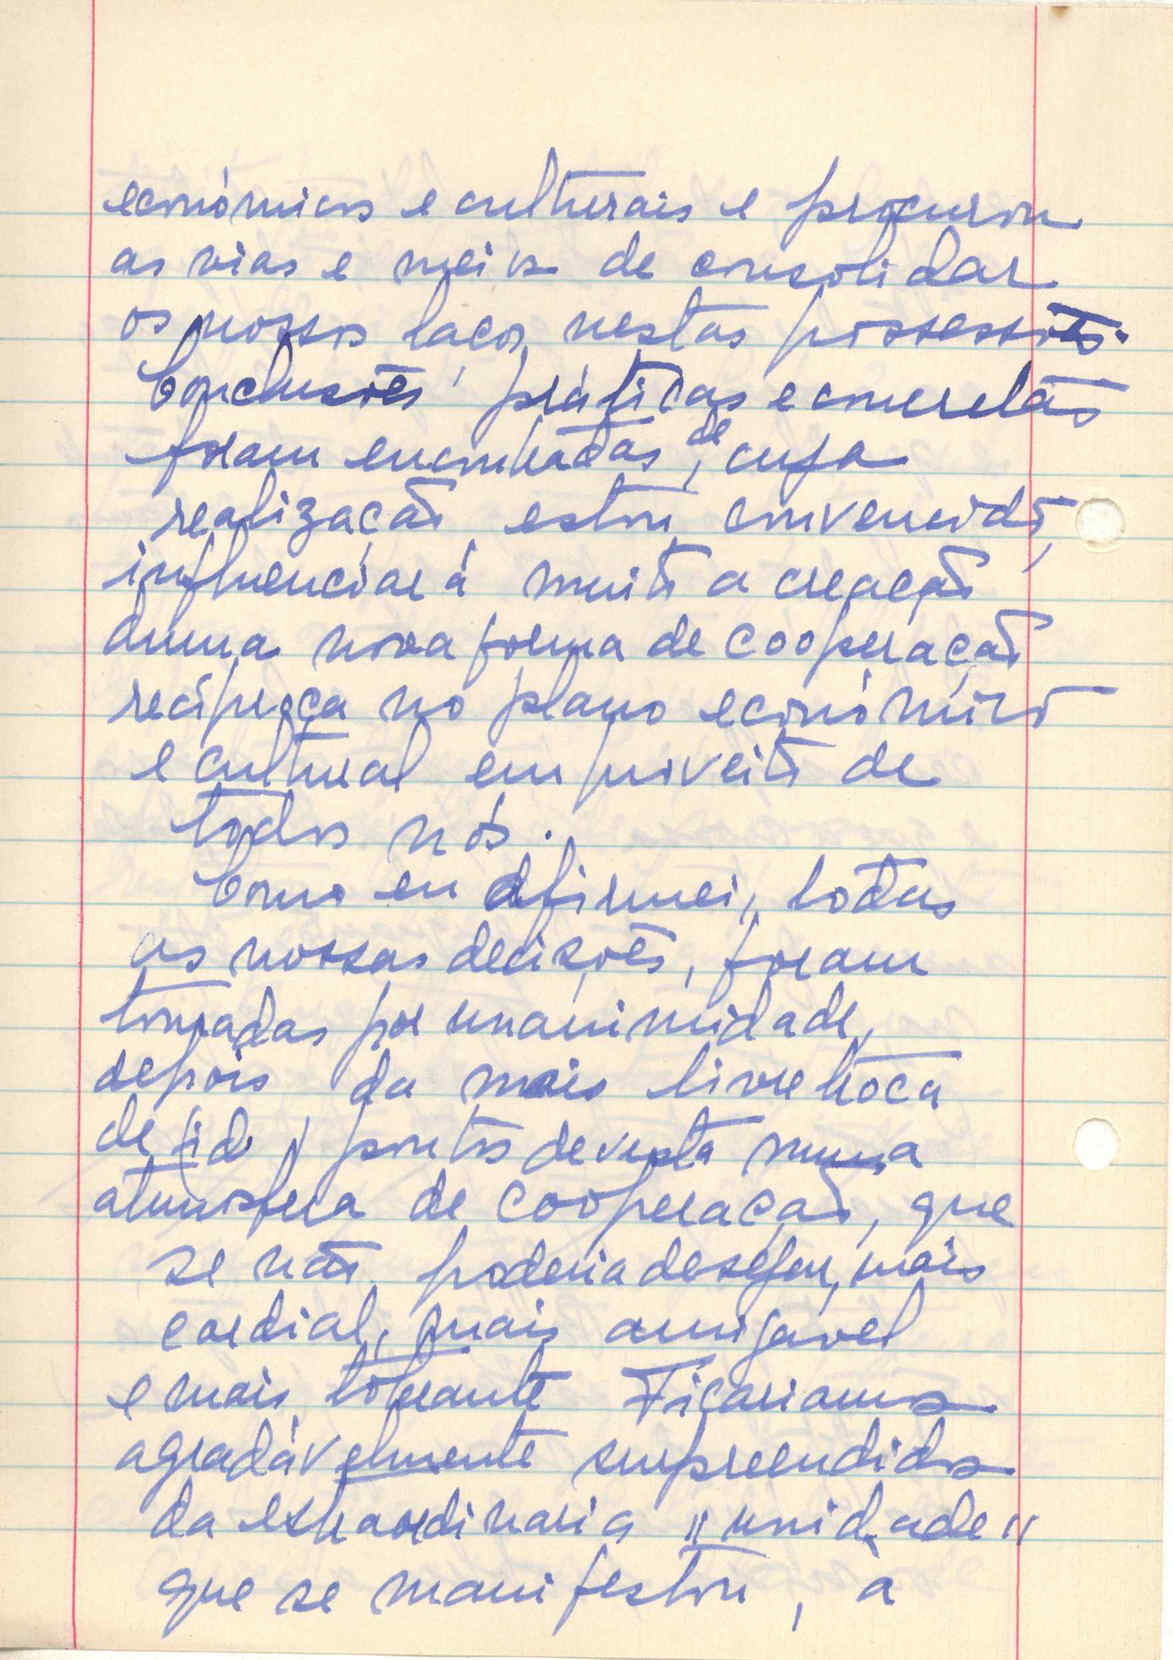 económicos e culturais e procurou
as vias e meios de consolidar
os nossos laços, nestas possessões.
Conclusões práticas e concretas
foram encontradas, de cuja
realização estou convencido,
influenciará muito a creação
duma nova forma de cooperação
recíproca no plano económico
e cultural em proveito de
todos nós.
Como eu afirmei, todas
as nossas decisões, foram
tomadas por unanimidade,
depois da mais livre troca
de pontos de vista numa
atmosfera de cooperação, que
se não poderia desejar, mais
cordial, mais amigavel
e mais tolerante Ficariamos
agradávelmente surpreendidos
da extraordinaria "unidade"
que se manifestou, à